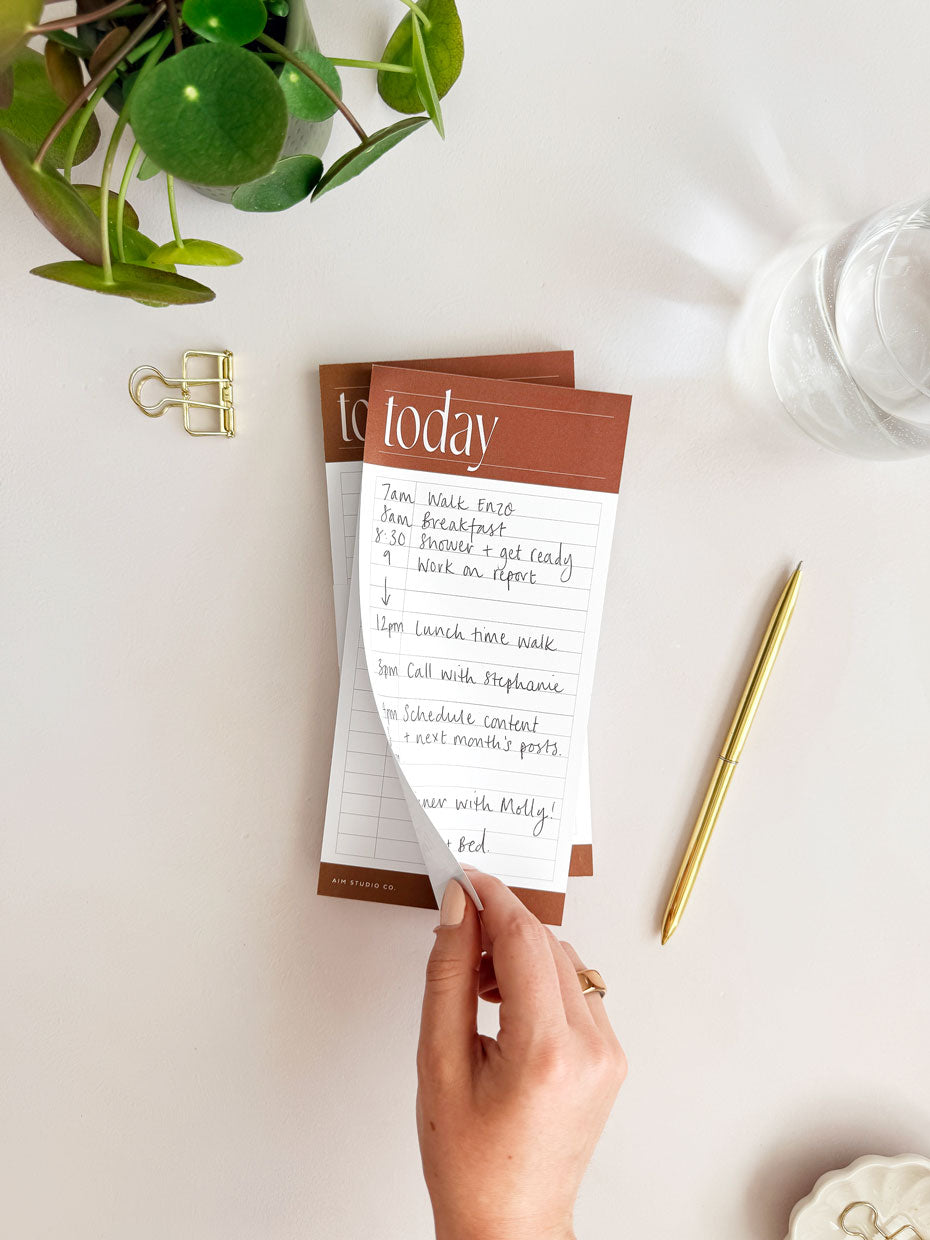 to
today
7am Walk Enzo
8am Breakfast
8:30 Shower + get ready
9 Work on report
↓
12pm Lunch time walk
3pm Call with Stephanie
Schedule content
+ next month's posts.
with Molly!
+ Bed.
AIM STUDIO CO.